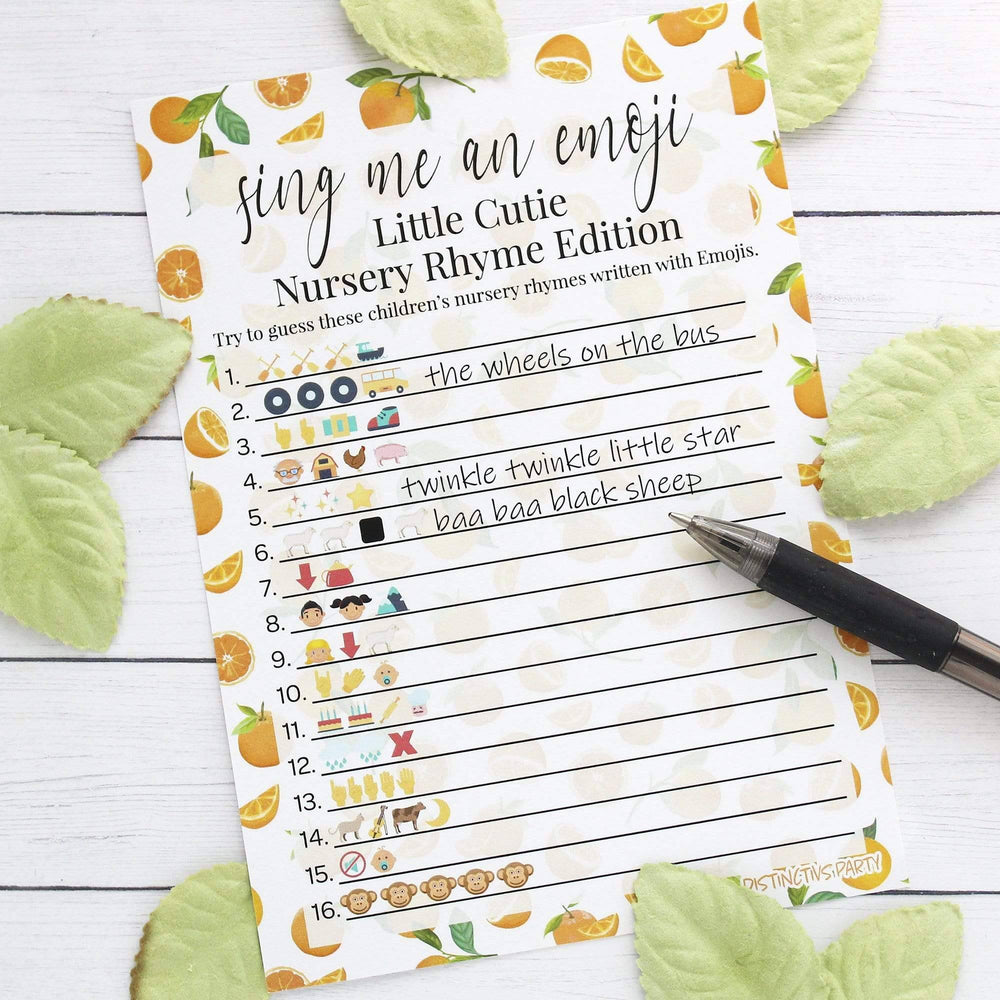 sing me an emoji
Little Cutie
Nursery Rhyme Edition
Try to guess these children's nursery rhymes written with Emojis.
1.
2. the wheels on the bus
3.
4.
5. twinkle twinkle little star
6. baa baa black sheep
7.
8.
9.
10.
11.
12.
13.
14.
15.
16.
DISTINCTIVS PARTY